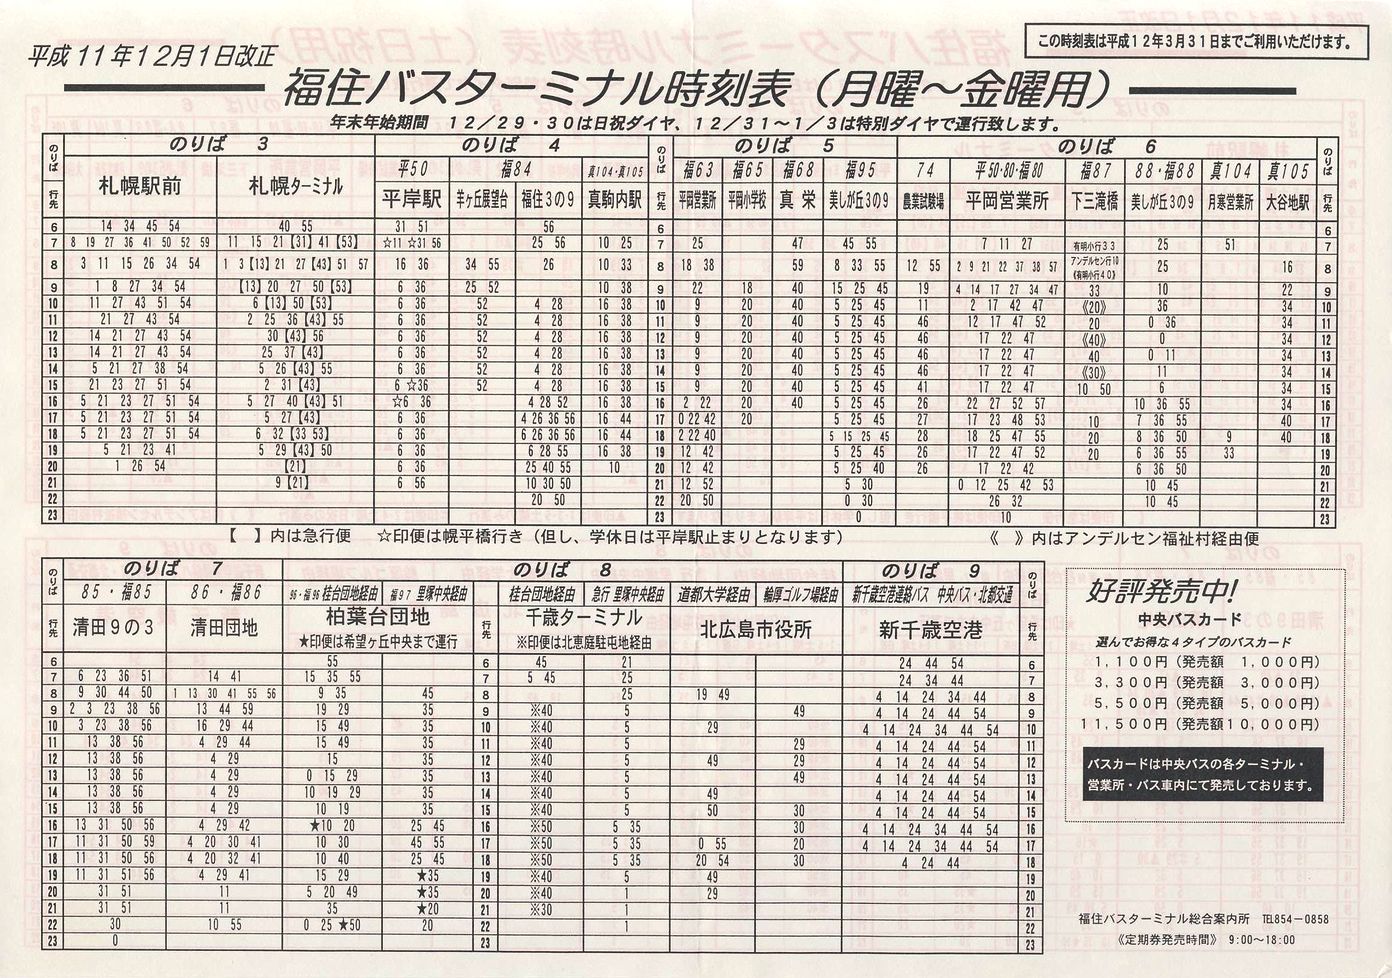 平成11年12月1日改正
この時刻表は平成12年3月31日までご利用いただけます。
福住バスターミナル時刻表（月曜～金曜用）
年末年始期間　12／29・30は日祝ダイヤ、12／31～1／3は特別ダイヤで運行致します。
のりば のりば 3 のりば 4 のりば のりば 5 のりば 6 のりば
平50 福84 真104・真105 福63 福65 福68 福95 74 平50・80・福80 福87 88・福88 真104 真105
行先 札幌駅前 札幌ターミナル 平岸駅 羊ヶ丘展望台 福住3の9 真駒内駅 行先 平岡営業所 平岡小学校 真栄 美しが丘3の9 農業試験場 平岡営業所 下三滝橋 美しが丘3の9 月寒営業所 大谷地駅 行先
6 14 34 45 54 40 55 31 51 56 6 6
7 8 19 27 36 41 50 52 59 11 15 21【31】41【53】 ☆11 ☆31 56 25 56 10 25 7 25 47 45 55 7 11 27 有明小行33 25 51 7
アンデルセン行10
8 3 11 15 26 34 54 1 3【13】21 27【43】51 57 16 36 34 55 26 10 33 8 18 38 59 8 33 55 12 55 2 9 21 22 37 38 57 《有明小行40》 25 16 8
9 1 8 27 34 54 【13】20 27 50【53】 6 36 25 52 10 38 9 22 18 40 15 25 45 19 4 14 17 27 34 47 33 10 22 9
10 11 27 43 51 54 6【13】50【53】 6 36 52 4 28 16 38 10 9 20 40 5 25 45 11 2 17 42 47 《20》 36 34 10
11 21 27 43 54 2 25 36【43】55 6 36 52 4 28 16 38 11 9 20 40 5 25 45 46 12 17 47 52 20 0 36 34 11
12 14 21 27 43 54 30【43】56 6 36 52 4 28 16 38 12 9 20 40 5 25 45 46 17 22 47 《40》 0 34 12
13 14 21 27 43 54 25 37【43】 6 36 52 4 28 16 38 13 9 20 40 5 25 45 46 17 22 47 40 0 11 34 13
14 5 21 27 38 54 5 26【43】55 6 36 52 4 28 16 38 14 9 20 40 5 25 45 46 17 22 47 《30》 11 34 14
15 21 23 27 51 54 2 31【43】 6 ☆36 52 4 28 16 38 15 9 20 40 5 25 45 41 17 22 47 10 50 6 34 15
16 5 21 23 27 51 54 5 27 40【43】51 ☆6 36 4 28 52 16 38 16 2 22 20 40 5 25 45 26 22 27 52 57 10 36 55 34 16
17 5 21 27 51 54 5 27【43】 6 36 4 26 36 56 16 44 17 0 22 42 20 5 25 45 27 17 23 48 53 10 7 36 55 40 17
18 5 21 23 27 51 54 6 32【33 53】 6 36 6 26 36 56 16 44 18 2 22 40 5 15 25 45 28 18 25 47 55 20 8 36 50 9 40 18
19 5 21 23 41 5 29【43】50 6 36 6 28 55 16 38 19 12 42 5 25 45 26 17 22 47 52 20 6 36 55 33 19
20 1 26 54 【21】 6 36 25 40 55 10 20 12 42 5 25 40 26 17 22 42 6 36 50 20
21 9【21】 6 56 10 30 50 21 12 52 5 30 0 12 25 42 53 10 45 21
22 20 50 22 20 50 0 30 26 32 10 45 22
23 23 0 10 23
【　】内は急行便　☆印便は幌平橋行き（但し、学休日は平岸駅止まりとなります）　《　》内はアンデルセン福祉村経由便
のりば のりば 7 のりば 8 のりば 9 のりば
85・福85 86・福86 96・福96 桂台団地経由 福97 里塚中央経由 桂台団地経由 急行 里塚中央経由 道都大学経由 輪厚ゴルフ場経由 新千歳空港連絡バス 中央バス・北都交通
行先 清田9の3 清田団地 柏葉台団地 行先 千歳ターミナル 北広島市役所 新千歳空港 行先
★印便は希望ヶ丘中央まで運行 ※印便は北恵庭駐屯地経由
6 55 6 45 21 24 44 54 6
7 6 23 36 51 14 41 15 35 55 7 5 45 25 24 34 44 7
8 9 30 44 50 1 13 30 41 55 56 9 35 45 8 25 19 49 4 14 24 34 44 8
9 2 3 23 38 56 13 44 59 19 29 35 9 ※40 5 49 4 14 24 44 54 9
10 3 23 38 56 16 29 44 15 49 35 10 ※40 5 29 4 14 24 34 44 54 10
11 13 38 56 4 29 44 15 49 35 11 ※40 5 29 4 14 24 44 54 11
12 13 38 56 4 29 15 35 12 ※40 5 49 29 4 14 24 44 54 12
13 13 38 56 4 29 0 15 29 35 13 ※40 5 49 4 14 24 44 54 13
14 13 38 56 4 29 10 19 29 35 14 ※40 5 49 4 14 24 44 54 14
15 13 38 56 4 29 10 19 35 15 ※40 5 50 30 4 14 24 44 54 15
16 13 31 50 56 4 29 42 ★10 20 25 45 16 ※50 5 35 30 4 14 24 34 44 54 16
17 11 31 50 59 4 20 30 41 10 30 45 55 17 ※50 5 35 0 55 30 4 14 24 34 44 54 17
18 11 31 50 56 4 20 32 41 10 40 25 45 18 ※50 5 35 20 54 30 4 24 44 18
19 11 31 51 56 4 29 41 15 29 ★35 19 ※40 5 49 19
20 31 51 11 5 20 49 ★35 20 ※40 1 29 20
21 31 51 11 35 ★20 21 ※30 1 21
22 30 10 55 0 25 ★50 20 22 1 22
23 0 23 23
好評発売中！
中央バスカード
選んでお得な4タイプのバスカード
1,100円（発売額　1,000円）
3,300円（発売額　3,000円）
5,500円（発売額　5,000円）
11,500円（発売額10,000円）
バスカードは中央バスの各ターミナル・
営業所・バス車内にて発売しております。
福住バスターミナル総合案内所　℡854－0858
《定期券発売時間》　9:00～18:00